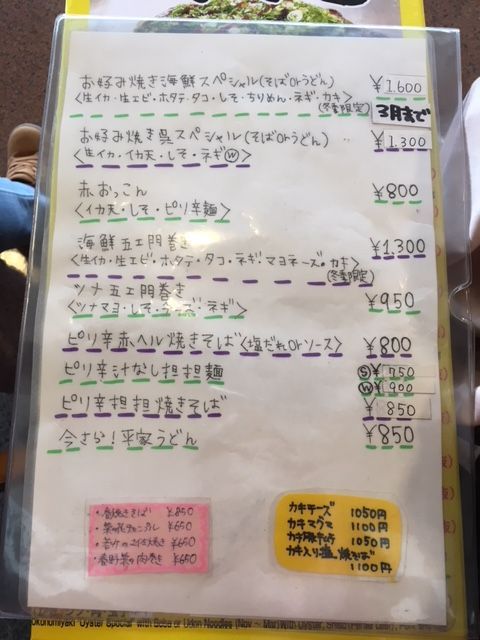 お好み焼き海鮮スペシャル(そばorうどん) ¥1.600
<生イカ・生エビ・ホタテ・タコ・しそ・ちりめん・ネギ・カキ>
(冬季限定) 3月まで
お好み焼き呉スペシャル(そばorうどん) ¥1.300
<生イカ・イカ天・しそ・ネギⓌ>
赤おっこん ¥800
<イカ天・しそ・ピリ辛麺>
海鮮五エ門巻き ¥1,300
<生イカ・生エビ・ホタテ・タコ・ネギ・マヨネーズ・カキ>
(冬季限定)
ツナ五エ門巻き ¥950
<ツナマヨ・しそ・チーズ・ネギ>
ピリ辛赤ヘル焼きそば<塩だれorソース> ¥800
ピリ辛汁なし担担麺 Ⓢ¥750
Ⓦ¥900
ピリ辛担担焼きそば ¥850
今さら!平家うどん ¥850
・春焼きそば ¥850
¥650
¥650
・春野菜の肉巻き ¥650
カキチーズ 1050円
カキマグマ 1100円
1050円
カキ入り塩焼そば
1100円
Okonomiyaki "Oyster Special" with Soba or Udon Noodles (Nov ~ Mar)